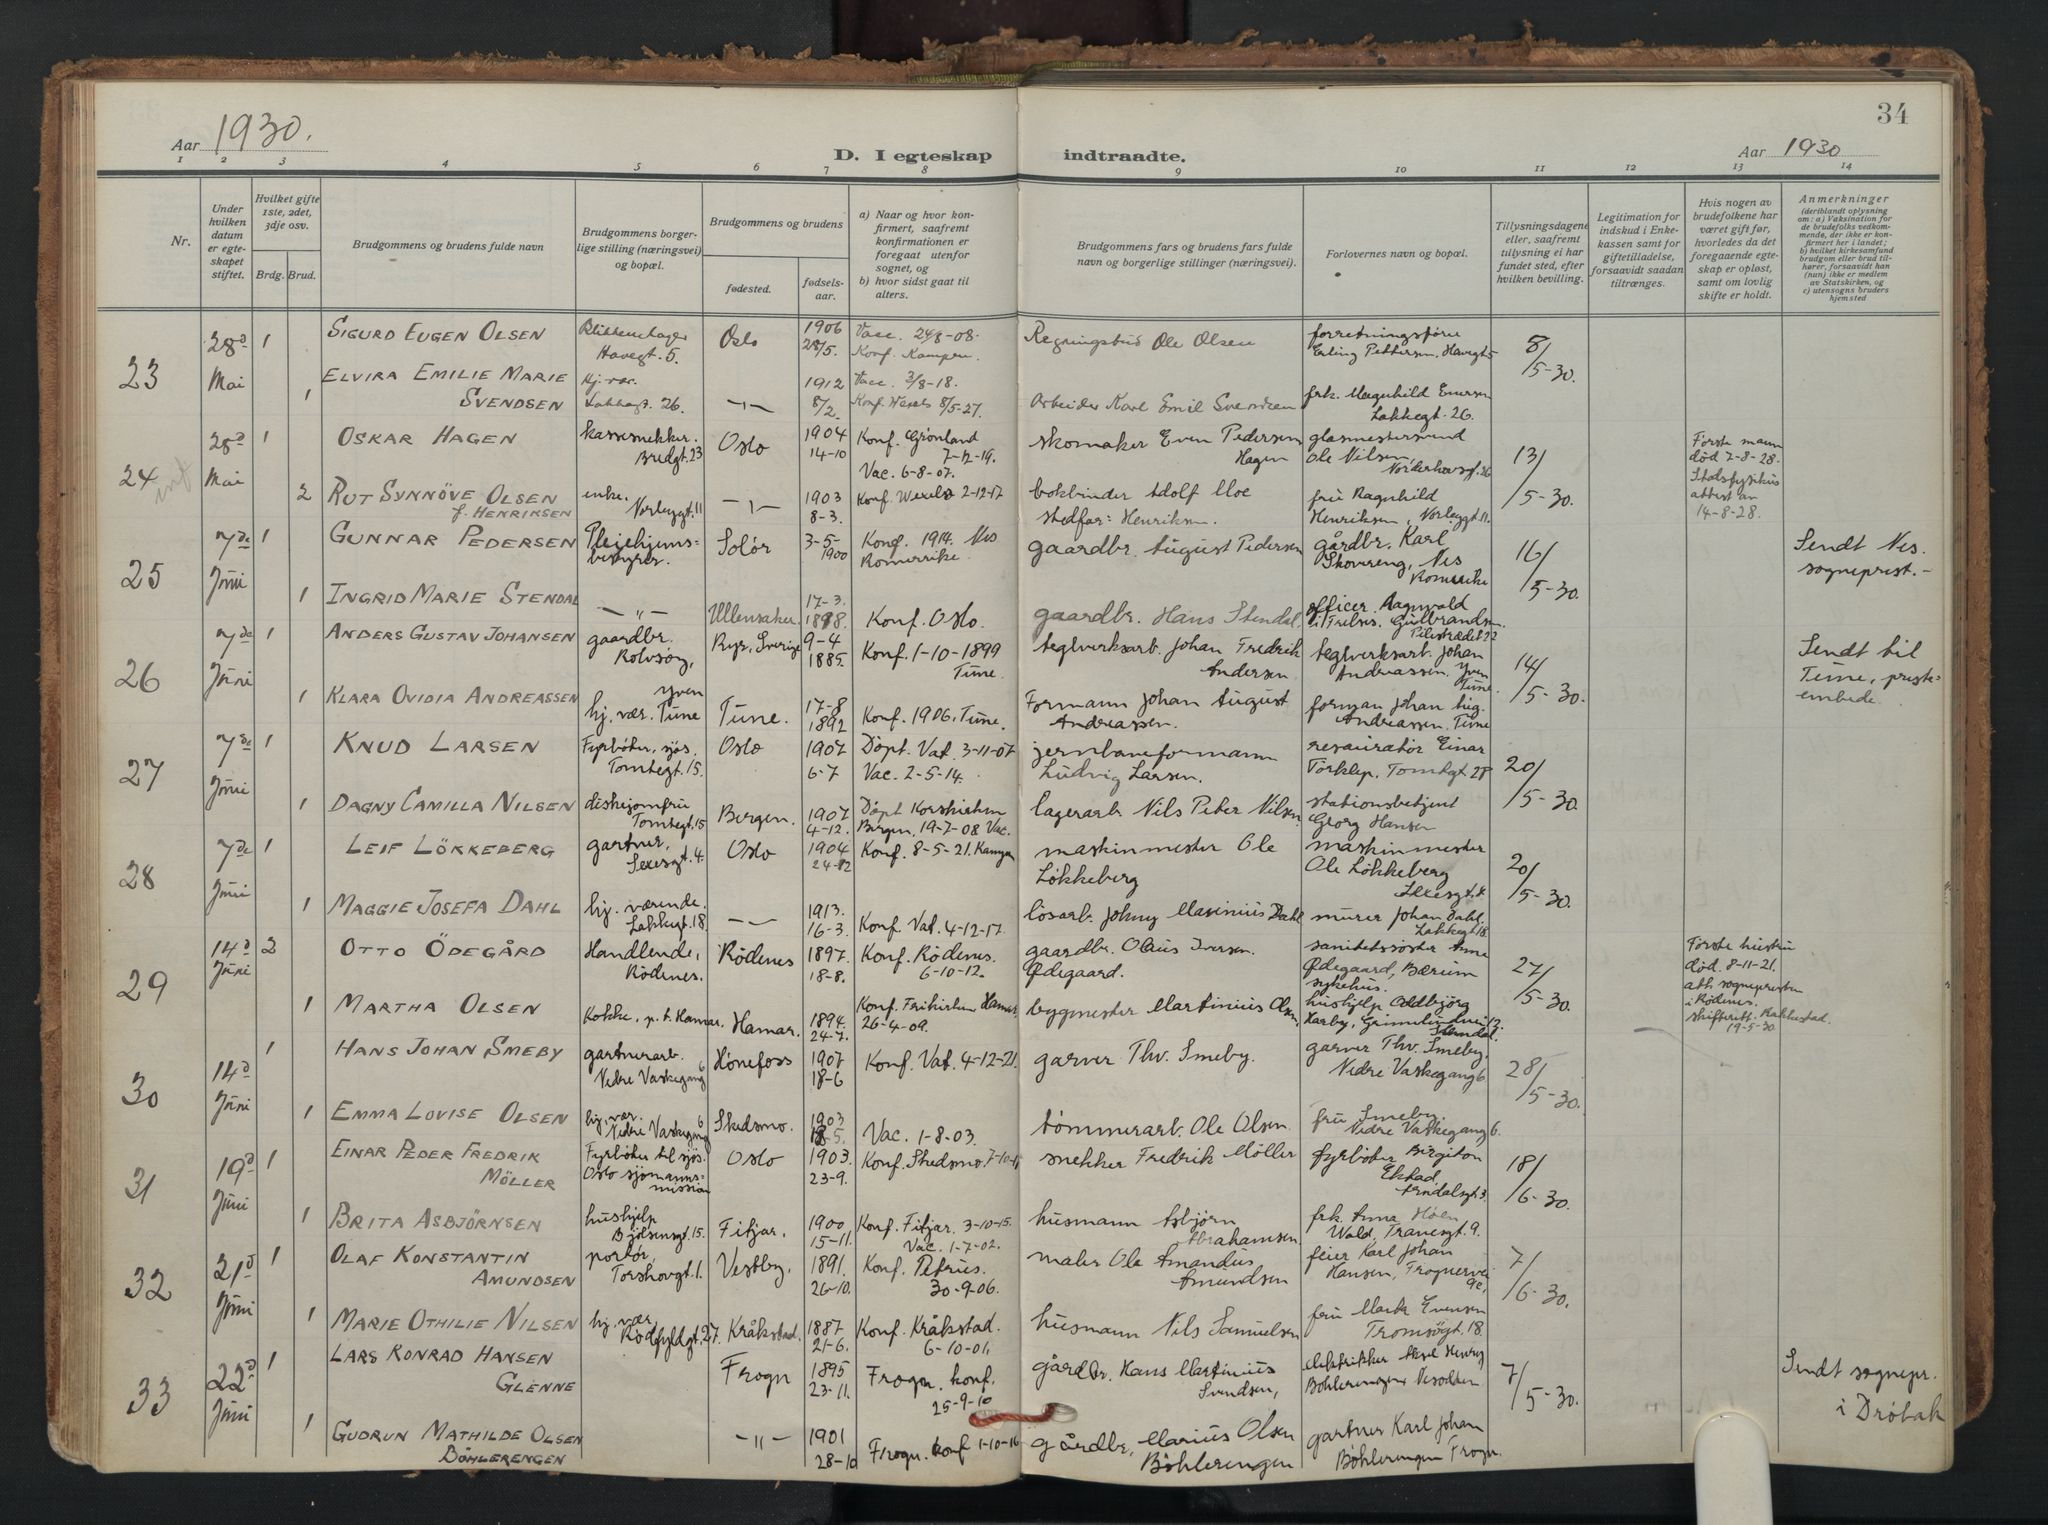 34
Aar 1930.
D. I egteskap indtraadte.
Aar 1930
1 2 3 4 5 6 7 8 9 10 11 12 13 14
Nr.
Under hvilken datum er egteskapet stiftet.
Hvilket gifte 1ste, 2det, 3dje osv.
Brdg. Brud.
Brudgommens og brudens fulde navn
Brudgommens borgerlige stilling (næringsvei) og bopæl.
Brudgommens og brudens
fødested.
fødselsaar.
a) Naar og hvor konfirmert, saafremt konfirmationen er foregaat utenfor sognet, og
b) hvor sidst gaat til alters.
Brudgommens fars og brudens fars fulde navn og borgerlige stillinger (næringsvei).
Forlovernes navn og bopæl.
Tillysningsdagene eller, saafremt tillysning ei har fundet sted, efter hvilken bevilling.
Legitimation for indskud i Enkekassen samt for giftetilladelse, forsaavidt saadan tiltrænges.
Hvis nogen av brudefolkene har været gift før, hvorledes da det foregaaende egteskap er opløst, samt om lovlig skifte er holdt.
Anmerkninger
(deriblandt oplysning om: a) Vaksination for de brudefolks vedkommende, der ikke er konfirmert her i landet; b) hvilket kirkesamfund brudgom eller brud tilhører, forsaavidt han (hun) ikke er medlem av Statskirken, og c) utensogns bruders hjemsted
23
28d Mai
1
SIGURD EUGEN OLSEN
Havegt. 5.
Oslo
1906 28/5.
Vacc. 24/8-08.
Konf. Kampen.
Regningsbud Ole Olsen
forretningsfører
Erling Pettersen, Havegt 5
8/5-30.
1
ELVIRA EMILIE MARIE
SVENDSEN
Hj. vær.
Lakkegt. 26.
—"—
1912 8/2.
Vacc. 3/8-18.
Konf. Wexels 8/5-27.
Arbeider Karl Emil Svendsen
frk. Magnhild Enersen
Lakkegt. 26.
24
28d Mai
1
OSKAR HAGEN
kassesnekker.
Bredgt. 23
Oslo
1904 14-10
Konf. Grønland
7-12-19.
Vac. 6-8-07.
skomaker Even Pedersen
Hagen
glasmestersvend
Ole Nilsen,
Norderhovsgt. 26
13/5-30.
Første mann
død 7-8-28.
Stadsfysikus
attest av
14-8-28.
2
RUT SYNNÖVE OLSEN
f. HENRIKSEN
enke.
Norbygt. 11
—"—
1903 8-3.
Konf. Wexels 2-12-17
bokbinder Adolf Moe
stedfar: Henriksen.
fru Ragnhild
Henriksen, Norbygt. 11.
25
7de Juni
1
GUNNAR PEDERSEN
Pleiehjems-
bestyrer
Solør
3-5-1900
Konf. 1914. Nes
Romerike
gaardbr. August Pedersen
gårdbr. Karl
Skovereng, Nes
Romerike
16/5-30.
Sendt Nes.
sogneprest.-
1
INGRID MARIE STENDAL
—"—
Ullensaker.
17-3. 1898.
Konf. Oslo.
gaardbr. Hans Stendal.
officer Ragnvald
i Frelses. Gulbrandsen.
Pilestrædet 22
26
7de Juni
1
ANDERS GUSTAV JOHANSEN
gaardbr.
Rolvsøy,
Ryr, Sverige
9-4 1885.
Konf. 1-10-1899
Tune.
teglverksarb. Johan Fredrik
Andersen
teglverksarb. Johan
Andreassen. Yven
Tune.
14/5-30.
Sendt til
Tune, preste-
embede.
1
KLARA OVIDIA ANDREASSEN
Yven
hj. vær. Tune
Tune.
17-8 1892
Konf. 1906. Tune.
Formann Johan August
Andreassen.
forman Johan Aug.
Andreassen. Tune
27
7de Juni
1
KNUD LARSEN
Fyrbøter, sjøs.
Tomtegt. 15.
Oslo
1907 6-7
Döpt. Vat. 3-11-07
Vac. 2-5-14.
jernbaneformann
Ludvig Larsen.
restauratør Einar
Torklep. Tomtegt. 28
20/5-30.
1
DAGNY CAMILLA NILSEN
diskejomfru
Tomtegt. 15
Bergen.
1907 4-12.
Döpt Korskirken
Bergen, 19-7-08 Vac.
lagerarb. Nils Peter Nilsen.
stationsbetjent
Georg Hansen
28
7de Juni
1
LEIF LÖKKEBERG
gartner,
Sexesgt. 4.
Oslo
1904 24-12
Konf. 8-5-21. Kampen
maskinmester Ole
Løkkeberg
maskinmester
Ole Løkkeberg
Sexesgt. 4
20/5-30.
1
MAGGIE JOSEFA DAHL
hj. værende.
Lakkegt. 18
—"—
1913. 16-3.
Konf. Vat. 4-12-17.
løsarb. Johny Marinius Dahl
murer Johan Dahl.
Lakkegt 18.
29
14d Juni
2
OTTO ÖDEGÅRD
Handlende,
Rödenes.
Rödenes
1897. 18-8.
Konf. Rödenes.
6-10-12.
gaardbr. Olaus Iversen.
Ødegaard.
sanitetssøster Anne
Ødegaard, Bærum
sykehus.
27/5-30.
Første hustru
død. 8-11-21.
att. sognepresten
i Rödenes.
skifterett. Rakkestad.
19-5-30.
1
MARTHA OLSEN
Kokke, p.t. Hamar.
Hamar.
1894. 24-7.
Konf. Frikirken Hamar,
26-4-09.
bygmester Martinius Olsen,
hushjelp Oddbjörg
30
14d Juni
1
HANS JOHAN SMEBY
gartnerarb.
Nedre Vaskegang 6
Hönefoss
1907 18-6
Konf. Vat. 4-12-21.
garver Thv. Smeby.
garver Thv. Smeby,
Nedre Vaskegang 6
28/5-30.
1
EMMA LOVISE OLSEN
hj. vær.
Nedre Vaskegang 6
Skedsmo.
1903 18-5.
Vac. 1-8-03.
tømmerarb. Ole Olsen.
fru Smeby.
Nedre Vaskegang 6.
31
19d Juni
1
EINAR PEDER FREDRIK
MÖLLER
Fyrbøter til sjøs.
Oslo sjømanns-
mission
Oslo
1903. 23-9.
Konf. Skedsmo.
snekker Fredrik Möller
fyrbøter Birgiton
Ekstad,
Arendalsgt. 3.
18/6-30.
1
BRITA ASBJÖRNSEN
hushjelp
Bjölsensgt. 15.
Fitjar.
1900 15-11.
Konf. Fitjar. 3-10-15.
Vac. 1-7-02.
husmann Asbjørn
Abrahamsen.
frk. Anna Høen
Wold, Tranesgt. 9.
32
21d Juni
1
OLAF KONSTANTIN
AMUNDSEN
portør,
Torshovgt. 1.
Vestby,
1891. 26-10.
Konf. Petrus.
30-9-06.
maler Ole Amandus
Amundsen
feier Karl Johan
Hansen, Trognervei
9c.
7/6-30.
1
MARIE OTHILIE NILSEN
hj. vær,
Rödfyldgt. 27.
Kråkstad.
1887 21-6.
Konf. Kråkstad.
6-10-01.
husmann Nils Samuelsen
fru Marta Evensen
Tromsøgt. 18.
33
22d Juni
1
LARS KONRAD HANSEN
GLENNE
Frogn
1895 23-11.
Frogn. konf.
25-9-10
gårdbr. Hans Martinius
Svendsen,
elektrikker Henry
Böhlerengen Nesodden
7/5-30.
Sendt sognepr.
i Dröbak
1
GUDRUN MATHILDE OLSEN
BÖHLERENGEN
—"—
1901 28-10
Frogn. konf 1-10-16
gårdbr. Marius Olsen
Böhlerengen
gartner Karl Johan
Böhlerengen Frogn.